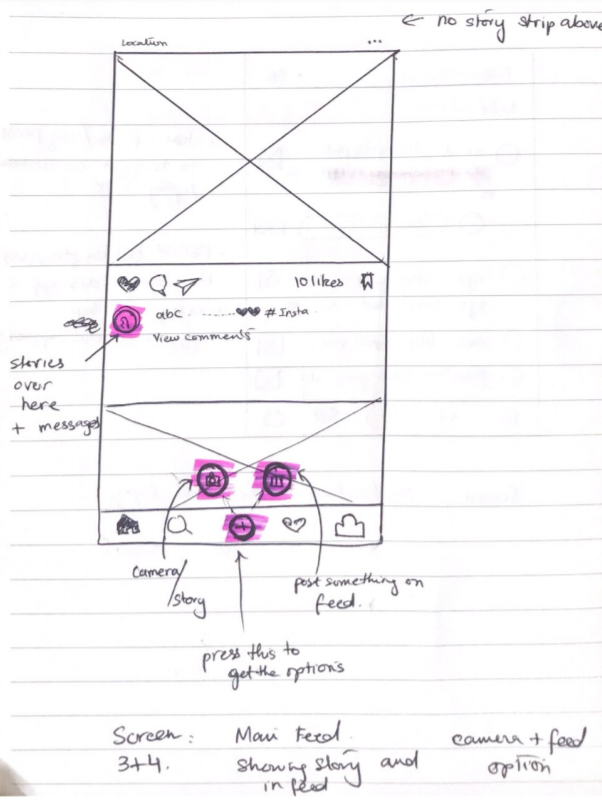 ← no story strip above
Location ...
10 likes
abc ........ ♥♥ #Insta
View comments
stories
over
here
+ messages
camera/
story
post something on
feed.
press this to
get the options
Screen: Main Feed. camera + feed
3+4. Showing story and option
in feed